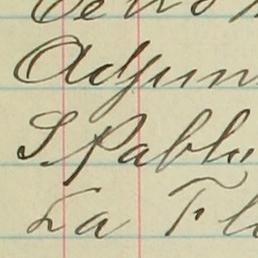 Adjun
S Pablo
La Fl